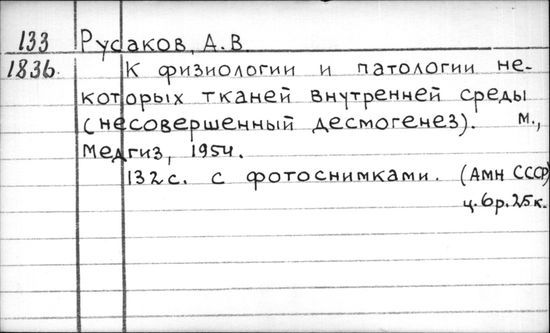 133 Русаков, А.В.
1836. К физиологии и патологии не-
которых тканей внутренней среды
(несовершенный десмогенез). М.,
Медгиз, 1954.
132с. с фотоснимками. (АМН СССР)
ц. 6р. 25к.